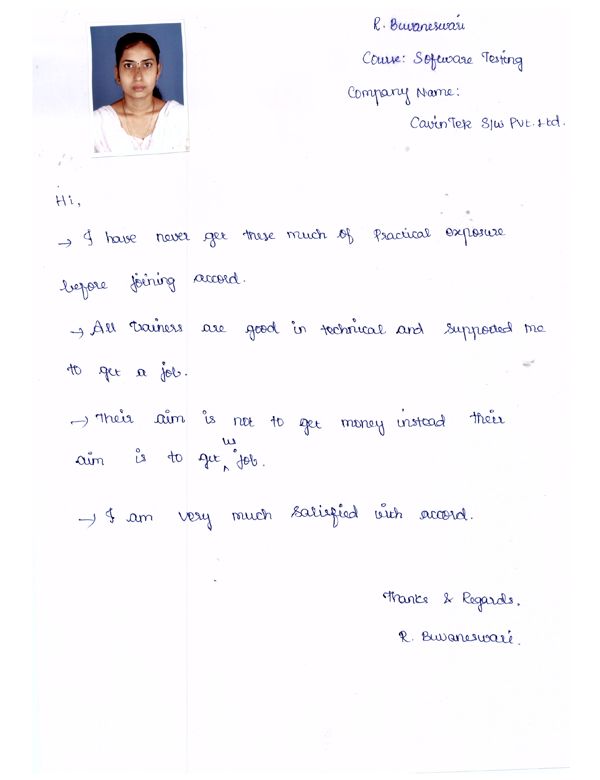 R. Buvaneswari
Course: Software Testing
Company Name:
CavinTek S/W Pvt. Ltd.
Hi,
→ I have never get these much of Practical exposure
before joining accord.
→ All trainers are good in technical and supported me
to get a job.
→ Their aim is not to get money instead their
aim is to get us job.
→ I am very much satisfied with accord.
Thanks & Regards,
R. Buvaneswari.